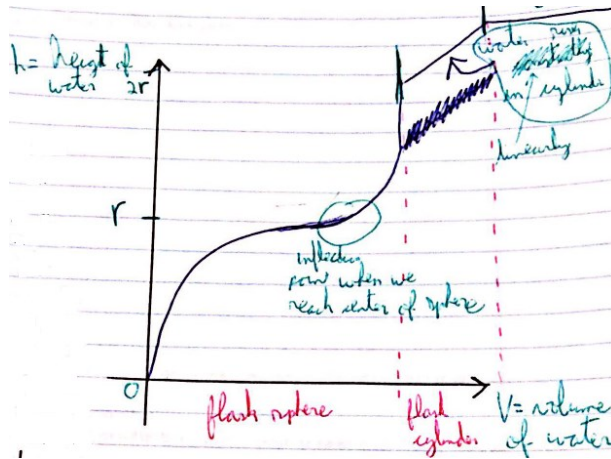 h = height of
water
2r
water rises
in cylinder
linearly
r
inflection
point when we
reach center of sphere
0
flask sphere
flask
cylinder
V = volume
of water